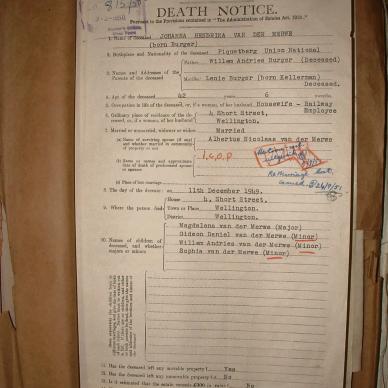 DEATH NOTICE.
Pursuant to the Provisions contained in "The Administration of Estates Act, 1913."
1. Name of deceased JOHANNA HENDRIKA VAN DER MERWE
(born Burger)
2. Birthplace and Nationality of the deceased Piquetberg Union National
3. Names and Addresses of the Parents of the deceased
Father Willem Andries Burger (Deceased)
Mother Lenie Burger (born Kellerman)
Deceased.
4. Age of the deceased 42 years 6 months.
5. Occupation in life of the deceased, or, if a woman, of her husband Housewife - Railway
Employee
6. Ordinary place of residence of the deceased, or, if a woman, of her husband
4, Short Street,
Wellington.
7. Married or unmarried, widower or widow Married
(a) Name of surviving spouse (if any) and whether married in community of property or not
Albertus Nicolaas van der Merwe
I.C.O.P
(b) Name or names and approximate date of death of predeceased spouse or spouses
(c) Place of last marriage
8. The day of the decease: on 11th December 1949.
9. Where the person died
House 4, Short Street,
Town or Place Wellington.
District Wellington.
10. Names of children of deceased, and whether majors or minors
Magdelena van der Merwe (Major)
Gideon Daniel van der Merwe (Minor)
Willem Andries van der Merwe (Minor)
Sophia van der Merwe (Minor)
11. Has the deceased left any movable property? Yes
12. Has the deceased left any immovable property? No
13. Is it estimated that the estate exceeds £300 in value? No